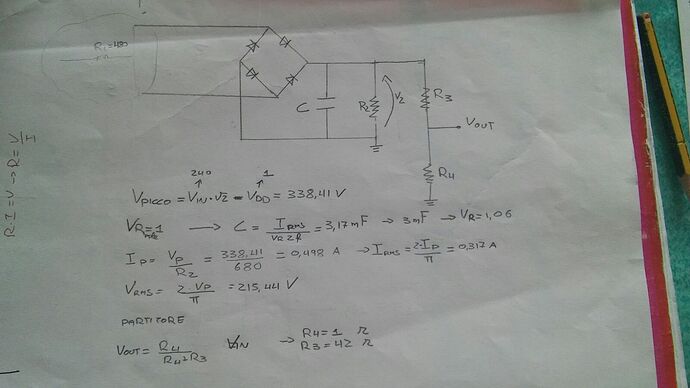 R1=480
C
R2
V2
R3
VOUT
R4
R·I=V → R=V/I
240 1
VPICCO = VIN·√2 - VDD = 338,41 V
VR=1 → C = IRMS/VR2f = 3,17mF → 3mF → VR=1,06
IP = VP/R2 = 338,41/680 = 0,498 A → IRMS = 2·IP/π = 0,317A
VRMS = 2·VP/π = 215,44 V
PARTITORE
VOUT = R4/R4+R3 VIN → R4=1 Ω
R3=42 Ω